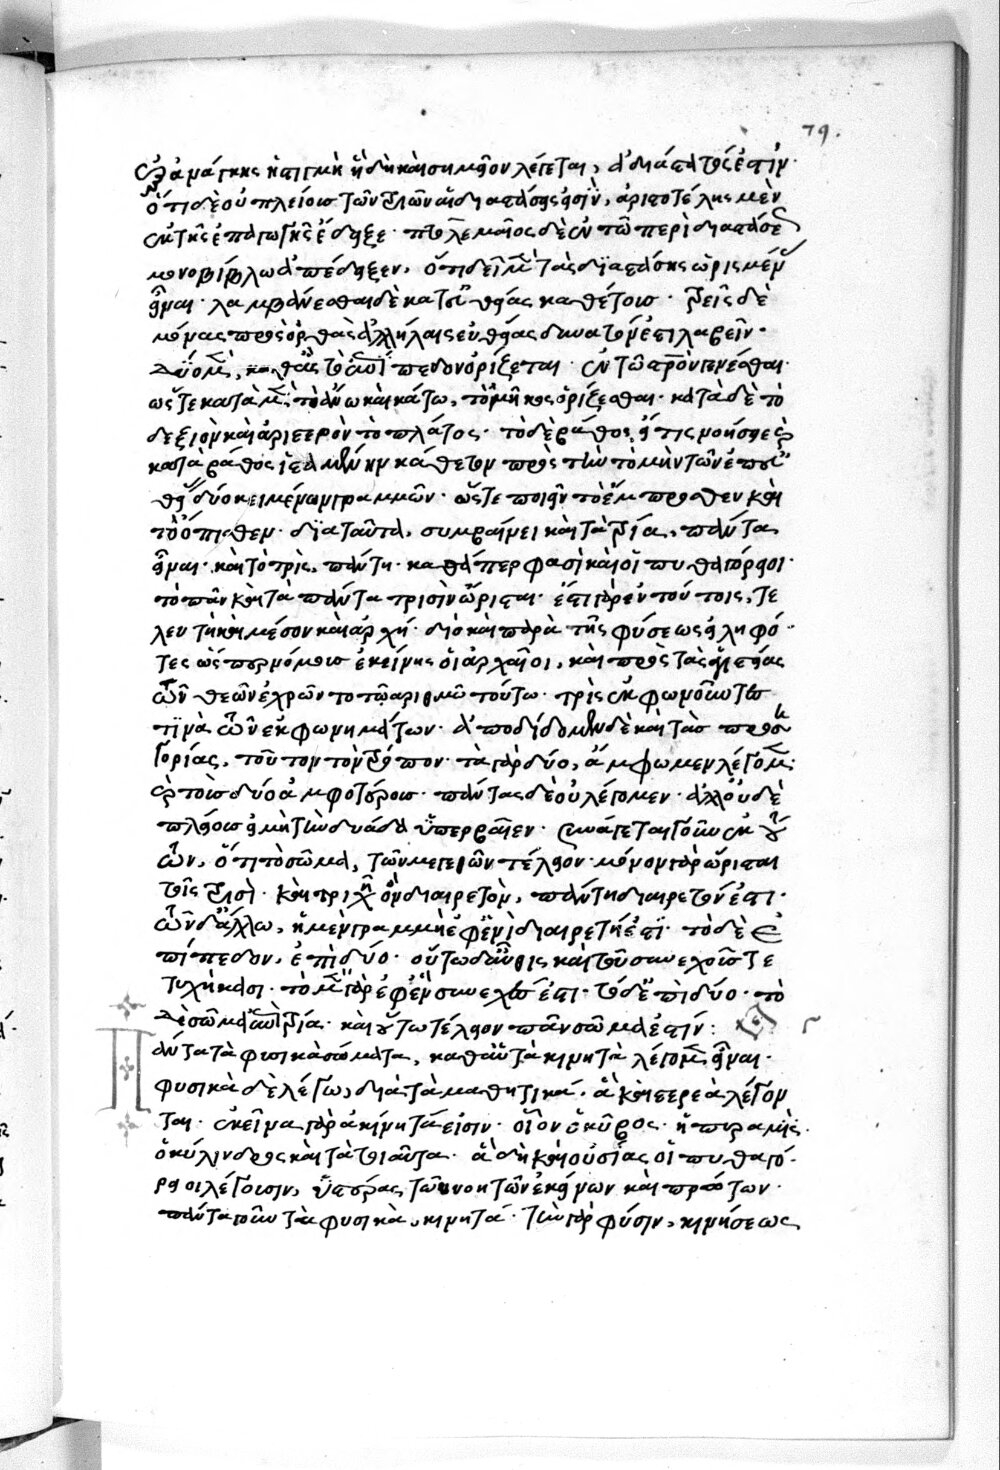 79.
ἐξ ἀνάγκης ἡ στιγμὴ ἤδη καὶ σημεῖον λέγεται, ἀδιάστατός ἐστιν·
ὅτι δὲ οὐ πλείους τῶν τριῶν αἱ διαστάσεις εἰσὶν, ἀριστοτέλης μὲν
ἐκ τῆς ἐπαγωγῆς ἔδειξε· πτολεμαῖος δὲ ἐν τῷ περὶ διαστάσεως
μονοβίβλω ἀπέδειξεν, ὅτι δεῖ μὲν τὰς διαστάσεις ὡρισμένας
εἶναι· λαμβάνεσθαι δὲ κατ' εὐθείας καθέτους· τρεῖς δὲ
μόνας πρὸς ὀρθὰς ἀλλήλαις εὐθείας δυνατόν ἐστι λαβεῖν·
δύο μὲν, καθ' ἃς τὸ ἐπίπεδον ὁρίζεται·
ὥστε κατὰ μὲν τὸ ἄνω καὶ κάτω, τὸ μῆκος ὁρίζεσθαι· κατὰ δὲ τὸ
δεξιὸν καὶ ἀριστερὸν τὸ πλάτος· τὸ δὲ βάθος, εἴ τις νοήσειε
κατὰ βάθος ἱσταμένην κάθετον πρὸς τὴν τομὴν τῶν ἐπ' εὐ
θείας δύο κειμένων γραμμῶν· ὥστε ποιεῖν τὸ ἔμπροσθεν καὶ
τὸ ὄπισθεν· διὰ ταῦτα, συμβαίνει καὶ τὰ τρία, πάντα
εἶναι· καὶ τὸ τρὶς, πάντη· καθάπερ φασὶ καὶ οἱ πυθαγόρειοι·
τὸ πᾶν καὶ τὰ πάντα τρισὶν ὥρισται· ἔστι γὰρ ἐν τούτοις, τε
λευτὴ καὶ μέσον καὶ ἀρχή· διὸ καὶ παρὰ τῆς φύσεως εἰληφό
τες ὡς νόμους ἐκείνης οἱ ἀρχαῖοι, καὶ πρὸς τὰς ἁγιστείας
τῶν θεῶν ἐχρῶντο τῷ ἀριθμῷ τούτω· τρὶς ἐκφωνοῦντες
τινὰ τῶν ἐκφωνημάτων· ἀποδίδομεν δὲ καὶ τὰς προση
γορίας, τοῦτον τὸν τρόπον· τὰ γὰρ δύο, ἄμφω μὲν λέγομεν·
καὶ τοὺς δύο ἀμφοτέρους· πάντας δὲ οὐ λέγομεν· ἀλλ' οὐδὲ
πλείους εἰ μὴ τὴν δυάδα ὑπερβαῖεν· συνάγεται γοῦν ἐκ τού
των, ὅτι τὸ σῶμα, τῶν μεγεθῶν τέλειον· μόνον γὰρ ὥρισται
τοῖς τρισὶ· καὶ τριχῇ ὂν διαιρετὸν, πάντη διαιρετόν ἐστι·
τῶν δ' ἄλλων, ἡ μὲν γραμμὴ ἐφ' ἓν ἡ διαιρετή ἐστι· τὸ δὲ ἐ
πίπεδον, ἐπὶ δύο· οὕτω δ' αὖθις καὶ τοῦ συνεχοῦς τε
τυχήκασι· τὸ μὲν γὰρ ἐφ' ἓν συνεχές ἐστι· τὸ δ' ἐπὶ δύο· τὸ
δὲ σῶμα ἐπὶ τρία· καὶ οὕτω τέλειον πᾶν σῶμά ἐστίν:
Πάντα τὰ φυσικὰ σώματα, καθ' αὑτὰ κινητὰ λέγομεν εἶναι·
φυσικὰ δὲ λέγω, διὰ τὰ μαθητικά· ἃ καὶ στερεὰ λέγον
ται· ἐκεῖνα γὰρ ἀκίνητά εἰσιν· οἷον ὁ κύβος· ἡ πυραμὶς·
ὁ κύλινδρος καὶ τὰ τοιαῦτα· ἃ δὴ καὶ οὐσίας οἱ πυθαγό
ρειοι λέγουσιν, ὑστέρας τῶν νοητῶν ἐκείνων καὶ πρώτων·
πάντα γοῦν τὰ φυσικὰ, κινητά· τὴν γὰρ φύσιν, κινήσεως